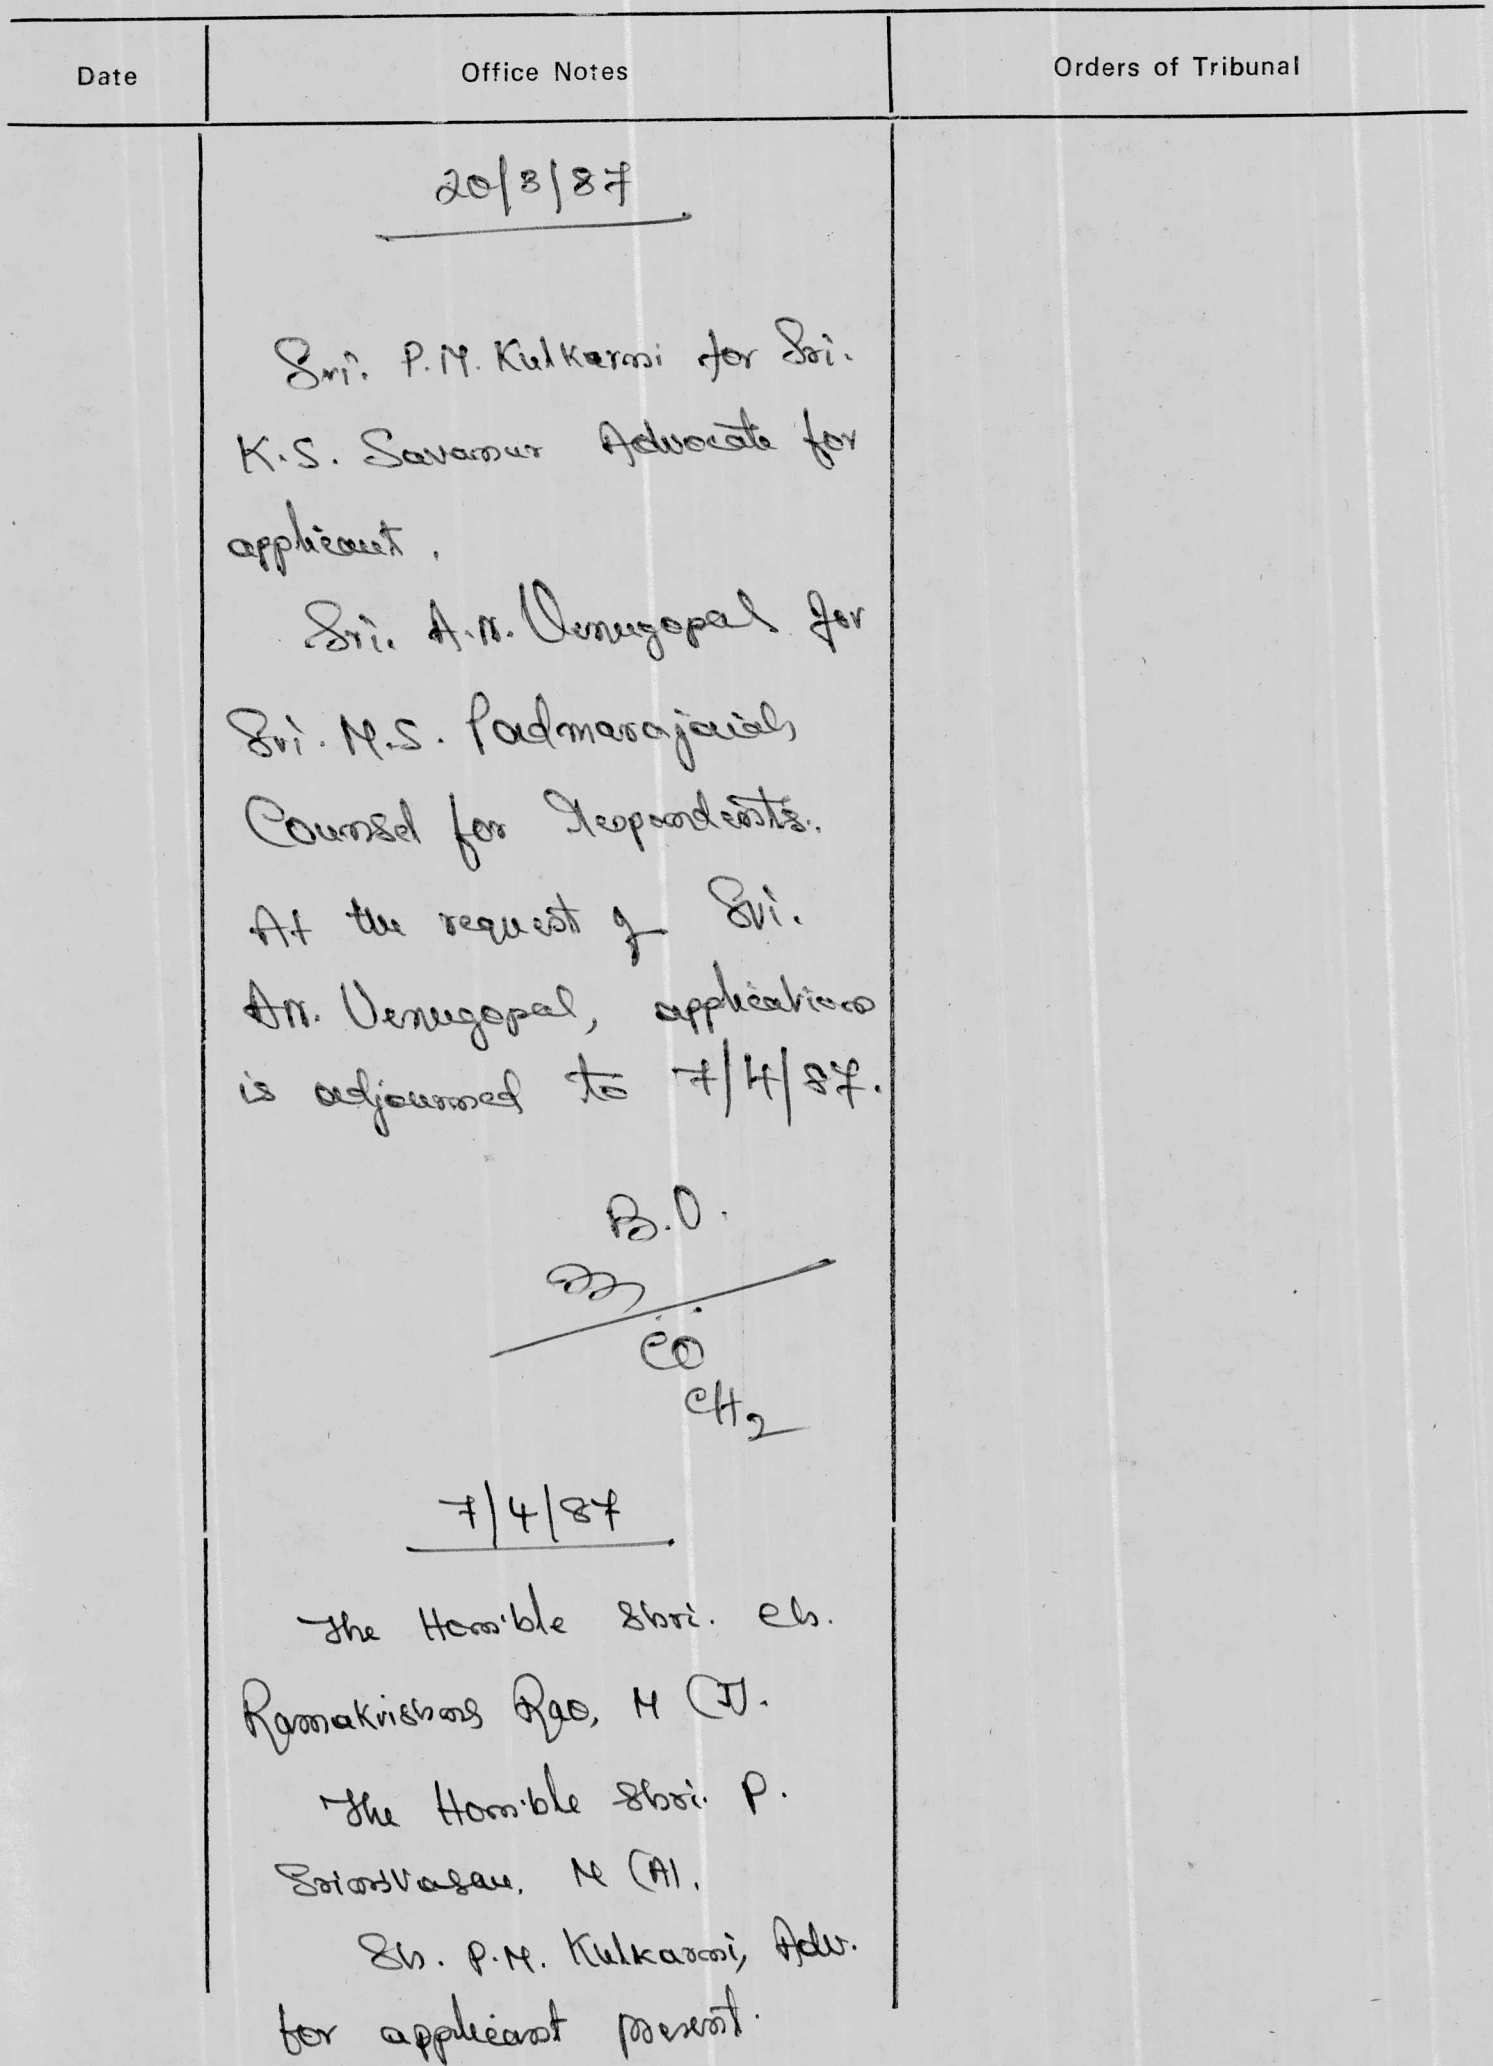 Date Office Notes Orders of Tribunal
20/3/87
Sri. P.M. Kulkarni for Sri.
K.S. Savanur Advocate for
applicant.
Sri. A.N. Venugopal for
Sri. M.S. Padmarajaiah
Counsel for Respondents.
At the request of Sri.
A.N. Venugopal, application
is adjourned to 7/4/87.
B.O.
CO
CH2
7/4/87
The Hon'ble Shri. Ch.
Ramakrishna Rao, M (J).
The Hon'ble Shri. P.
Srinivasan, M (A).
Sh. P.M. Kulkarni, Adv.
for applicant present.